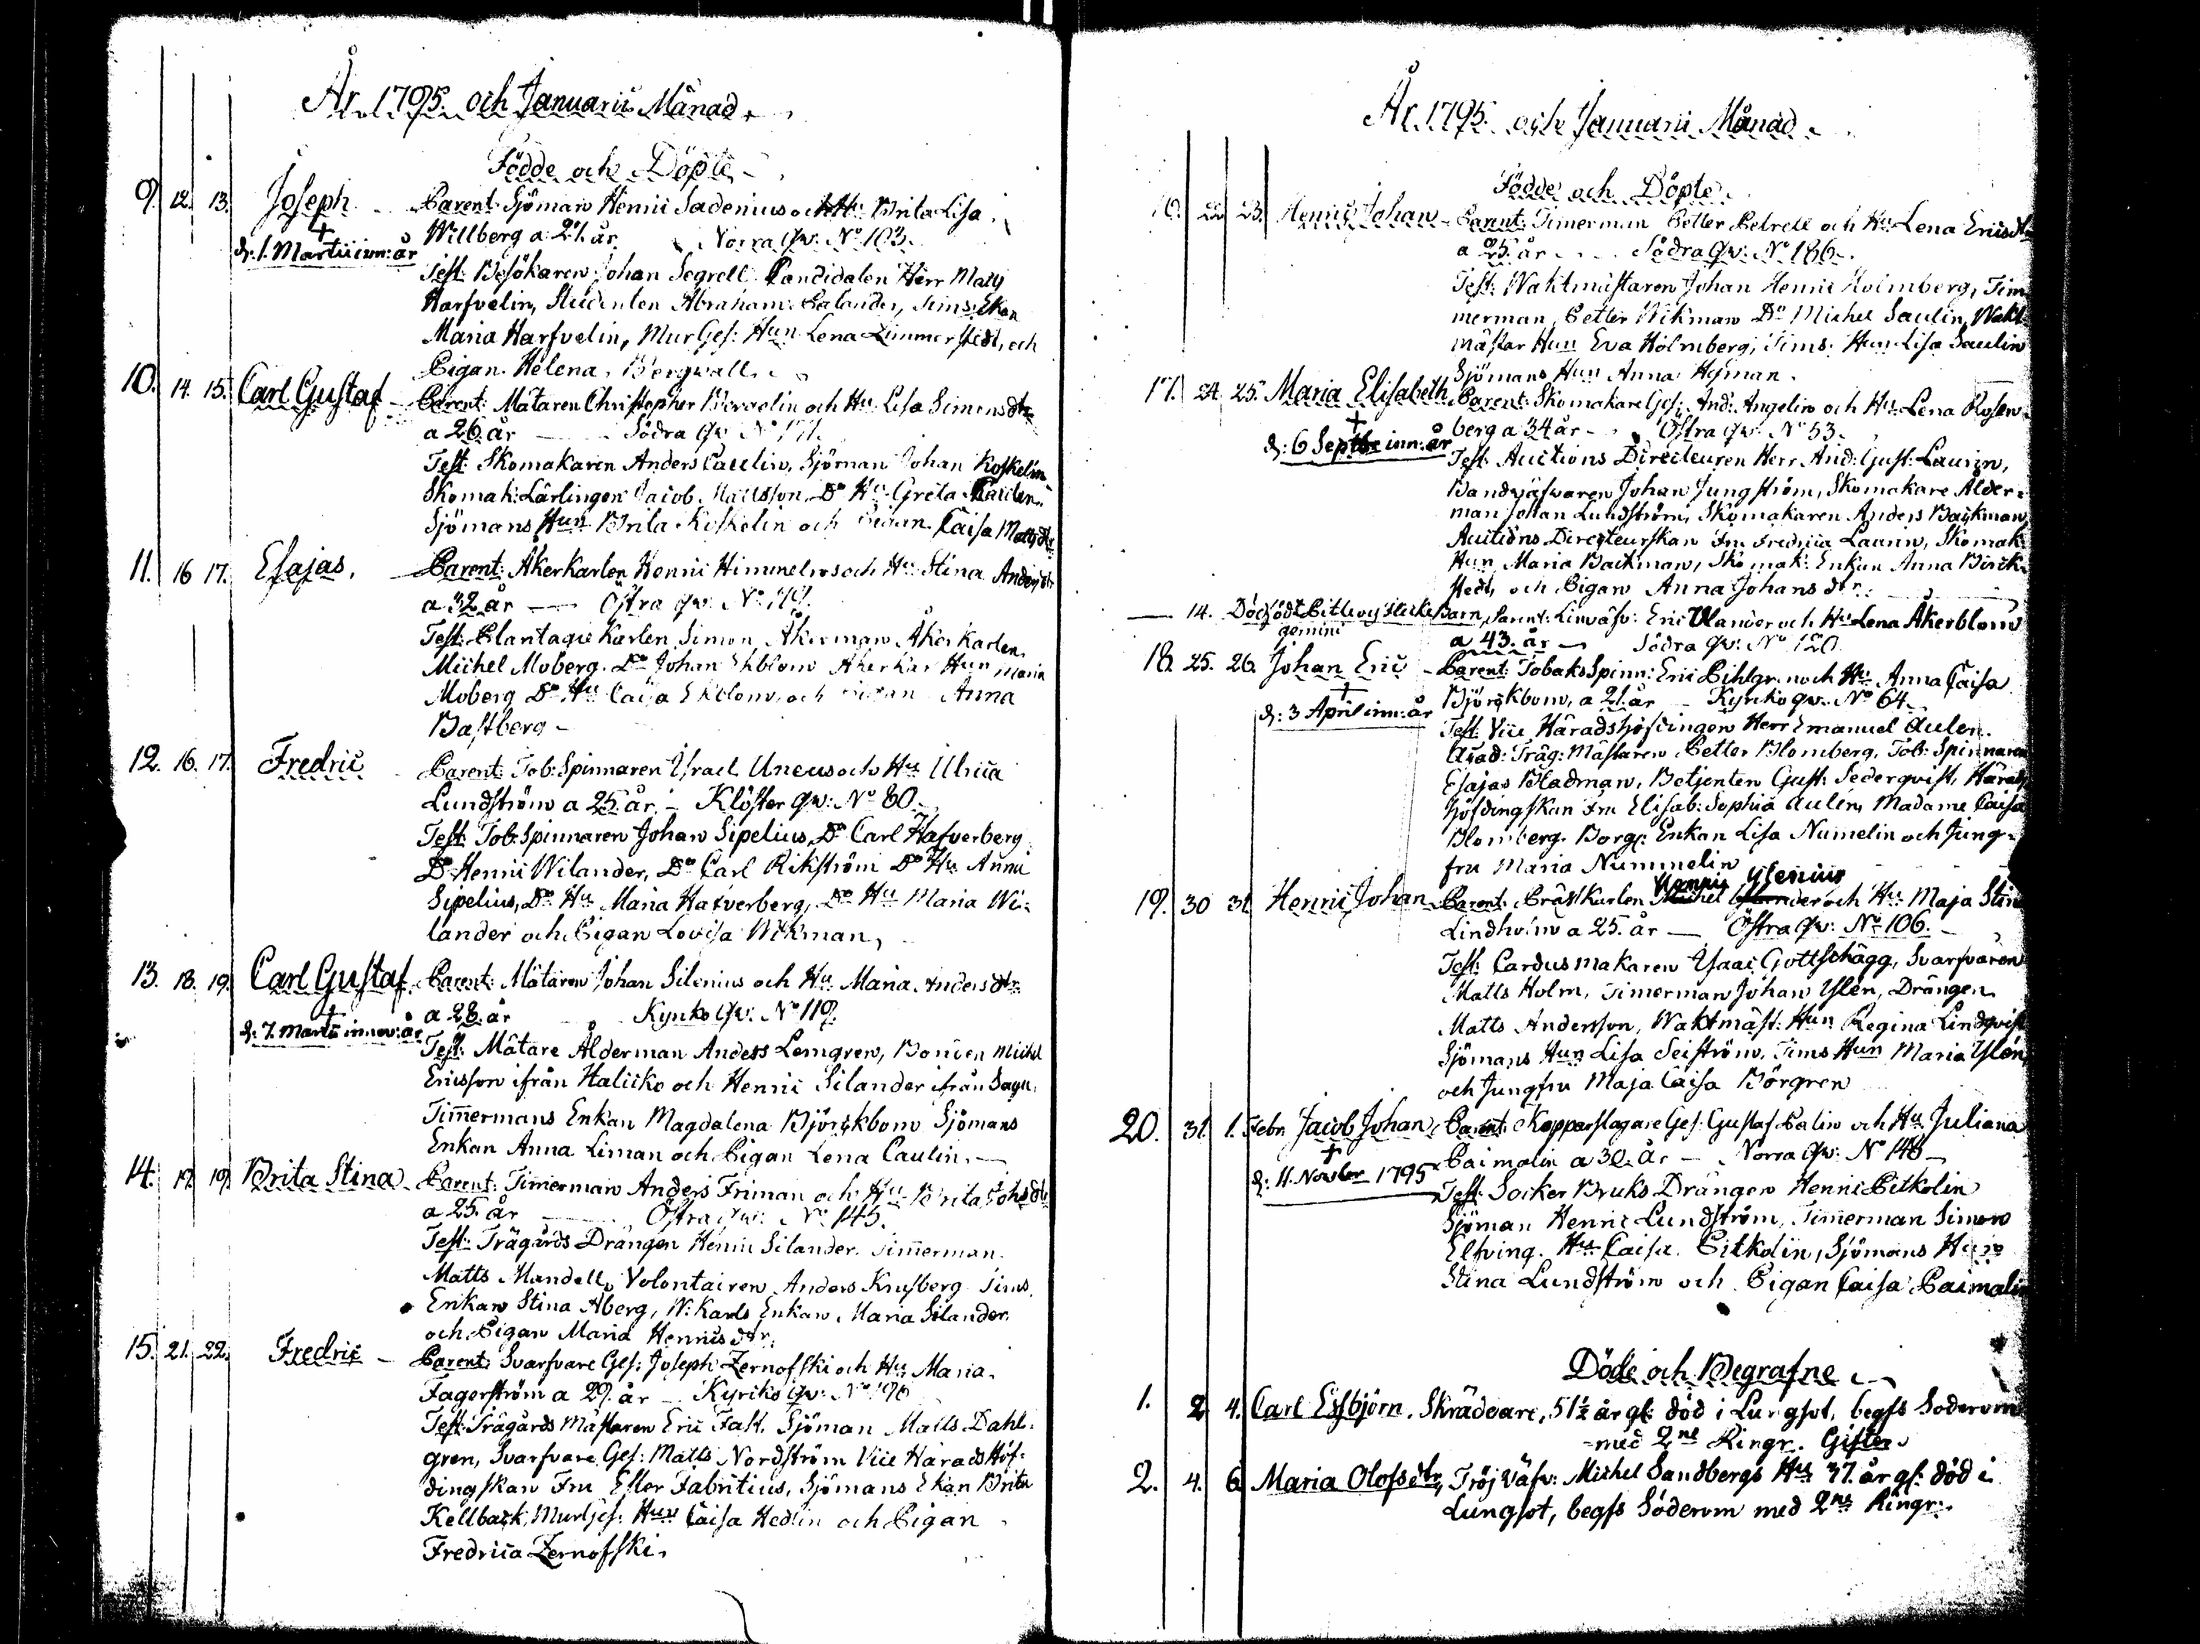 År 1795. och Januarii Månad.
Födde och Döpte
9. 12. 13. Joseph Parent: Sjöman Henric Sadenius och Hu: Brita Lisa
Willberg a 27. år. Norra Qv: No 103.
d. 1. Martii inn: år
Test: Besökaren Johan Segrell. Candidaten Herr Matts
Harfvelin, Studenten Abraham Palander, Tims: Ekan
Maria Harfvelin, Mur Ges: Hun Lena Zimmerstedt, och
Pigan Helena Bergwall.
10. 14. 15. Carl Gustaf Parent: Mätaren Christopher och Hu: Lisa Simonsdtr
a 26. år Södra Qv: No
Test: Skomakaren Anders Paulin, Sjöman Johan Koskelin
Skomak: Lärlingen Jacob Mattsson, Do Hu: Greta Paulin
Sjömans Hun Brita Koskelin och Pigan Caisa Mattsdtr
11. 16 17. Esajas. Parent: Åkerkarlen Henric Himmelroos och Hu: Stina Andersdtr
a 32. år Östra Qv: No
Test: Plantagie Karlen Simon Åkerman Åkerkarlen
Michel Moberg. Do Johan Ekblom Åkerkar Hun Maria
Moberg Do Hu Caisa Ekblom, och Pigan Anna
Bastberg
12. 16. 17. Fredric Parent: Tob: Spinnaren Israel Uneus och Hu: Ulrica
Lundström a 25. år. Klöster Qv: No 80.
Test: Tob: Spinnaren Johan Sipelius, Do Carl Hafverberg
Do Henric Wilander, Do Carl Rikström Do Hu Anna
Sipelius, Do Hu Maria Hafverberg, Do Hu Maria Wi-
lander och Pigan Lovisa Wikman,
13. 18. 19. Carl Gustaf Parent: Mätaren Johan Silenius och Hu: Maria Andersdtr
a 28. år Kyrko Qv: No 119.
d: 7. Martii innev: år
Test: Mätare Ålderman Anders Lemgren, Bonden Michel
Ericsson ifrån Halicko och Henric Silander ifrån Sagu.
Timmermans Enkan Magdalena Björckbom Sjömans
Enkan Anna Liman och Pigan Lena Paulin.
14. 17. 19. Brita Stina Parent: Timerman Anders Friman och Hu: Brita Johsdtr
a 25. år Östra Qv: No 145.
Test: Trägårds Drängen Henric Silander. Timerman
Matts Mandell, Volontairen Anders Knysberg Tims.
Enkan Stina Åberg, W: Karls Enkan Maria Silander.
och Pigan Maria Henricsdtr.
15. 21. 22. Fredric Parent: Svarfvare Ges: Joseph Zernofski och Hu: Maria
Fagerström a 29. år Kyrko Qv: No
Test: Trägårds Mästaren Eric Falk. Sjöman Matts Dahl-
gren, Svarfvare Ges: Matts Nordström Vice Härads Höf-
dingskan Fru Ester Fabritius, Sjömans Ekan Brita
Kellback, Mur Ges: Hun Caisa Hedlin och Pigan
Fredrica Zernofski.
År 1795. och Januarii Månad.
Födde och Döpte
16. 22 23. Henric Johan Parent: Timerman Petter Petrell och Hu: Lena Ericsdtr
a 25. år Södra Qv: No 186.
Test: Waktmästaren Johan Henric Holmberg, Tim
merman Petter Wikman Do Michel Saulin, Wakt
mästar Hun Eva Holmberg, Tims: Hun Lisa Saulin
Sjömans Hun Anna Hyman.
17. 24. 25. Maria Elisabeth Parent: Skomakare Ges: And: Angelin och Hu: Lena Rosen-
berg a 34 år Östra Qv: No 53.
d: 6 Septbr inn: år
Test: Auctions Directeuren Herr And: Gust: Laurin,
Bandväfvaren Johan Jungström, Skomakare Ålder-
man Johan Lundström, Skomakaren Anders Backman
Auctions Directeurskan Fru Fredrica Laurin, Skomak:
Hun Maria Backman, Skomak: Enkan Anna Birck-
stedt, och Pigan Anna Johansdtr.
14. Dödfödt Barn, Parent: Linväfv: Eric Wlander och Hu: Lena Åkerblom
gemini a 43. år Södra Qv: No 120.
18. 25. 26. Johan Eric Parent: Tobaks Spinn: Eric Pihlgren och Hu: Anna Caisa
Björckbom, a 21. år Kyrko Qv: No 64.
d: 3 April inn: år
Test: Vice Häradshöfdingen Herr Emanuel Aulen.
Acad: Träg: Mästaren Petter Blomberg, Tob: Spinnaren
Esajas Bladman, Betjenten Gust: Sederqvist, Härads
höfdingskan Fru Elisab: Sophia Aulen, Madame Caisa
Blomberg. Borg: Enkan Lisa Numelin och Jung-
fru Maria Nummelin
19. 30 31. Henric Johan Parent: Bräckarlen Henric Ylenius och Hu: Maja Stin
Lindholm a 25. år Östra Qv: No 106.
Test: Cardusmakaren Isaac Gottschägg, Svarfvaren
Matts Holm, Timerman Johan Ylen, Drängen
Matts Andersson, Waktmäst: Hun Regina Lindqvist
Sjömans Hun Lisa Seiström, Tims Hun Maria Ylen,
och Jungfru Maja Caisa Börgren
20. 31. 1. Febr. Jacob Johan Parent: Kopparslagare Ges: Gustaf Palin och Hu: Juliana
Paimolin a 30. år Norra Qv: No 148
d: 11. Novbr 1795
Test: Socker Bruks Drängen Henric Pitkolin
Sjöman Henric Lundström, Timmerman Simon
Elfving. Hu: Caisa Pitkolin, Sjömans Hun
Stina Lundström och Pigan Caisa Paimolin
Döde och Begrafne
1. 2 4. Carl Essbjörn. Skräddare, 51½ år gl: död i Lungsot, begfs Söderom
med 2ne Ringr. Gifter
2. 4. 6. Maria Olofsdtr, Tröjväfv: Michel Sandbergs Hu 37. år gl: död i
Lungsot, begfs Söderom med 2ne Ringr.